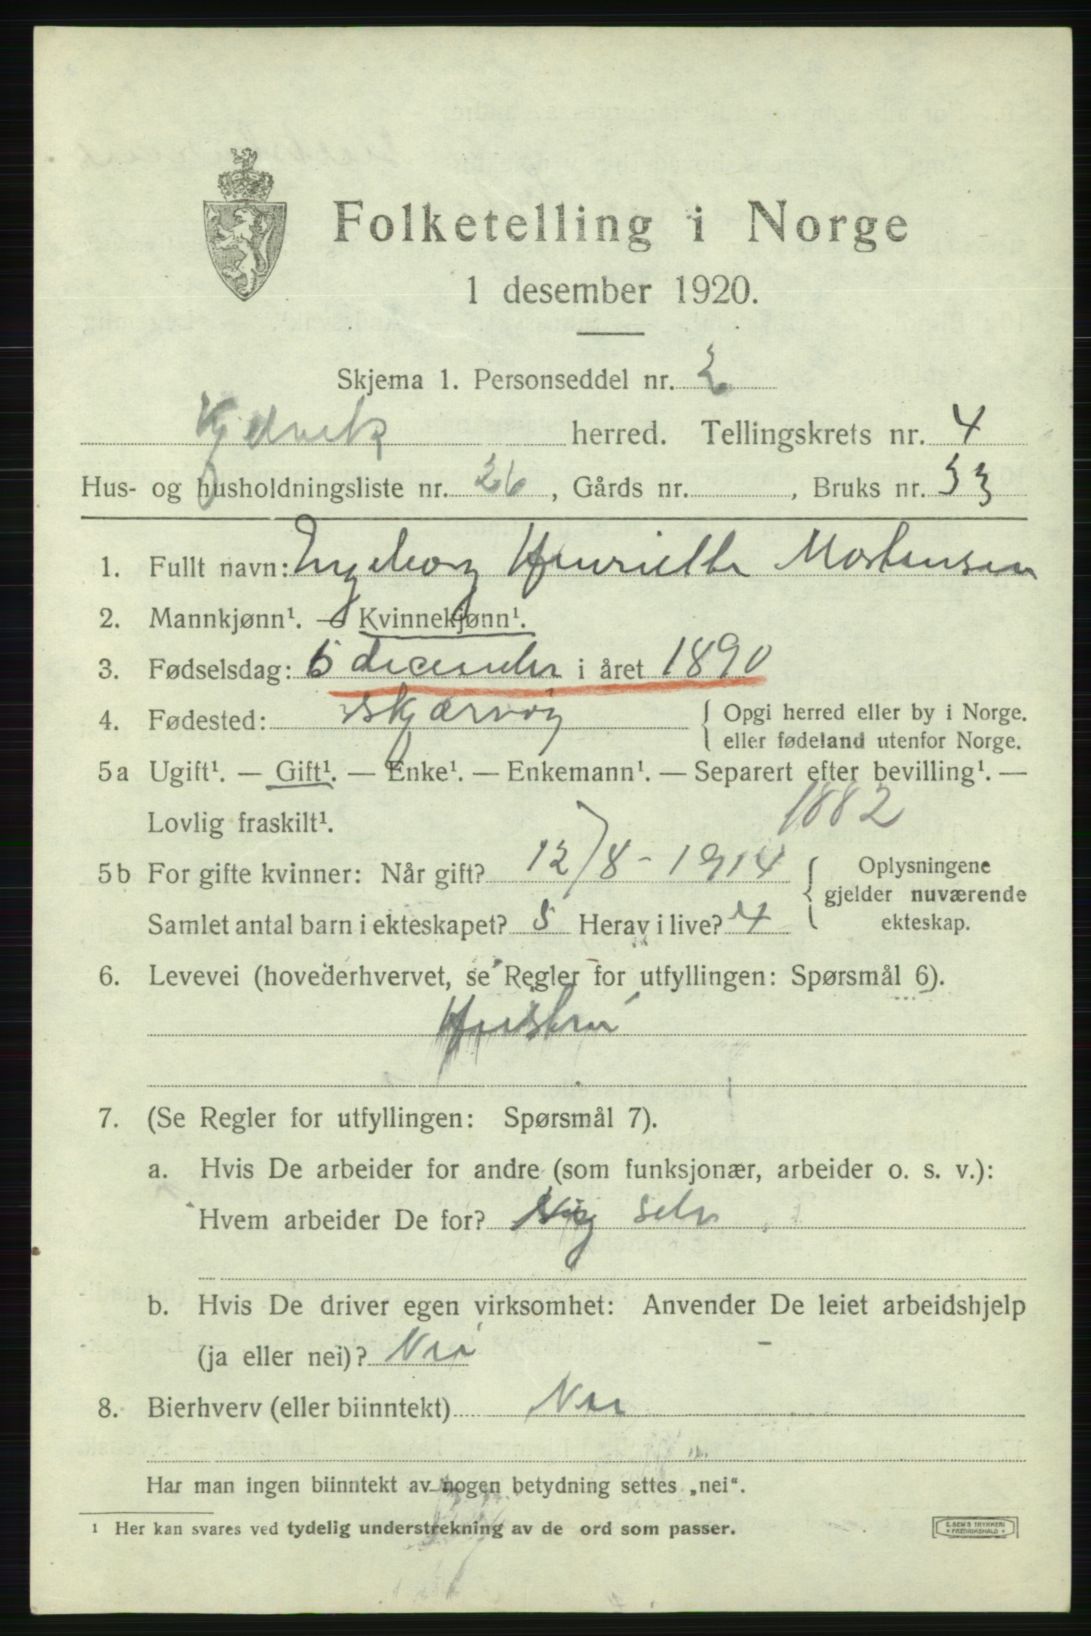 Folketelling i Norge
1 desember 1920.
Skjema 1. Personseddel nr. 2
Kjelvik herred. Tellingskrets nr. 4
Hus- og husholdningsliste nr. 26, Gårds nr. , Bruks nr. 33
1. Fullt navn: Ingeborg Henriette Mortensen
2. Mannkjønn¹. — Kvinnekjønn¹.
3. Fødselsdag: 6 december i året 1890
4. Fødested: Skjærvøy { Opgi herred eller by i Norge.
eller fødeland utenfor Norge.
5a Ugift¹. — Gift¹. — Enke¹. — Enkemann¹. — Separert efter bevilling¹. —
Lovlig fraskilt¹. 1882
5b For gifte kvinner: Når gift? 12/8 - 1914 { Oplysningene
gjelder nuværende
Samlet antal barn i ekteskapet? 5 Herav i live? 4 ekteskap.
6. Levevei (hovederhvervet, se Regler for utfyllingen: Spørsmål 6).
Hustru
7. (Se Regler for utfyllingen: Spørsmål 7).
a. Hvis De arbeider for andre (som funksjonær, arbeider o. s. v.):
Hvem arbeider De for? Sig selv
b. Hvis De driver egen virksomhet: Anvender De leiet arbeidshjelp
(ja eller nei)? Nei
8. Bierhverv (eller biinntekt) Nei
Har man ingen biinntekt av nogen betydning settes „nei“.
¹ Her kan svares ved tydelig understrekning av de ord som passer.
E. SEM'S TRYKKERI
FREDRIKSHALD